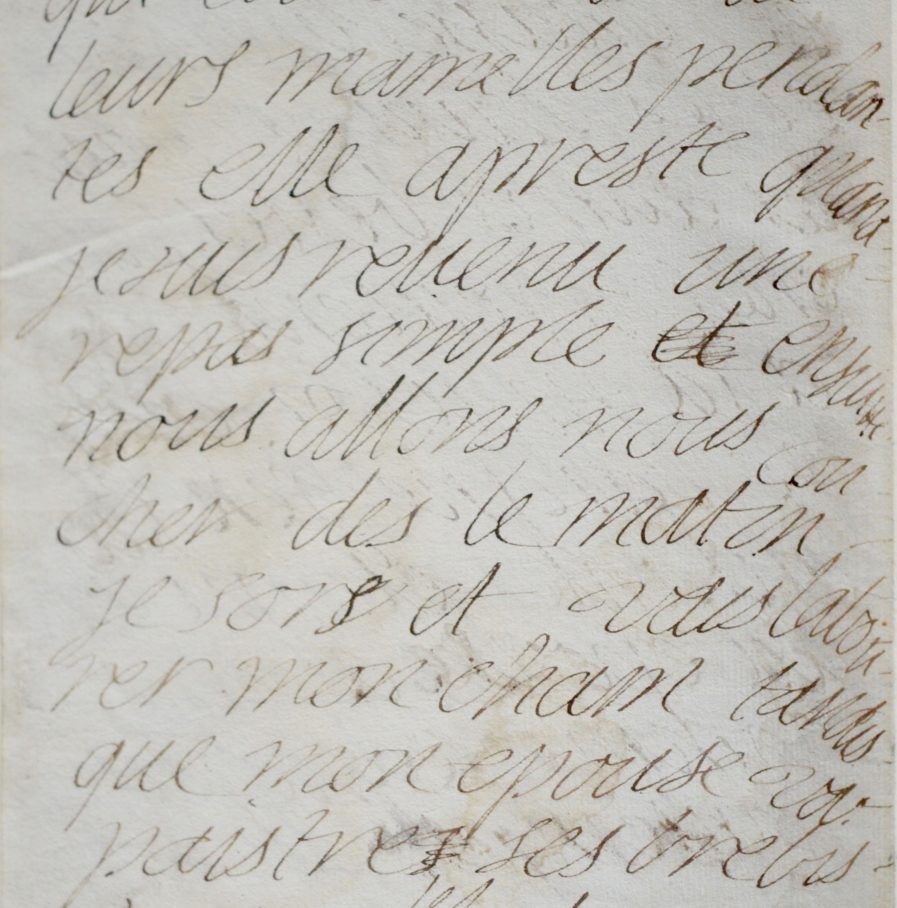 leurs mamelles pendan-
tes elle apreste quand
je suis revenu une
repas simple et ensuitte
nous allons nous cou-
cher des le matin
je sors et vais labou-
rer mon cham tandis
que mon epouse va
paistre ses brebis